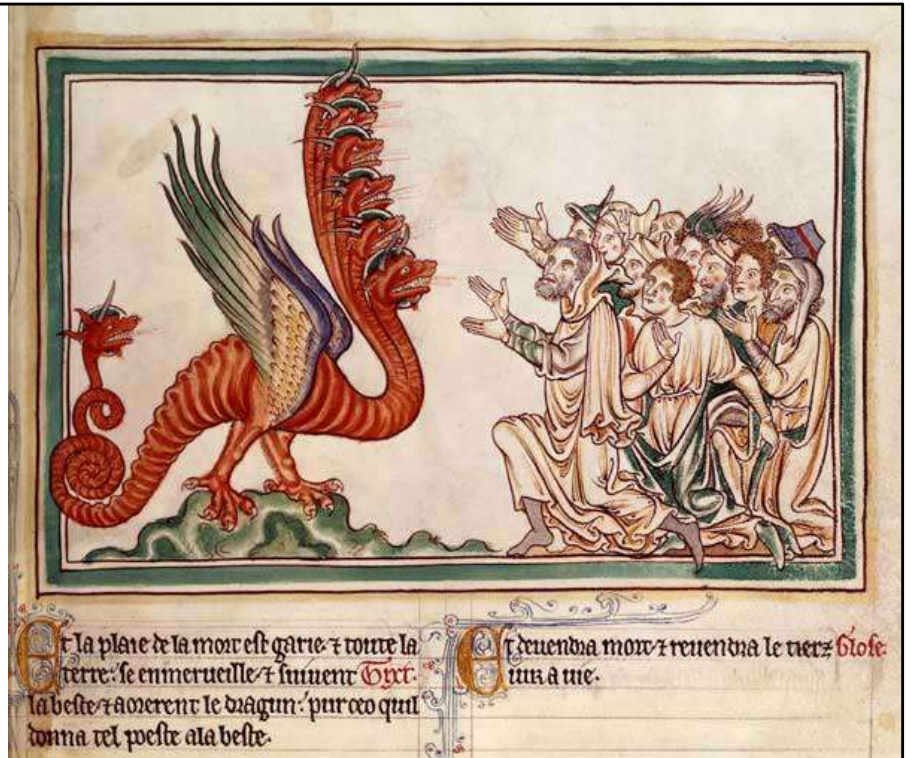 Et la plaie de la mort est garie. ⁊ toute la
terre. se enmerueille ⁊ siuuent Tixt.
la beste ⁊ aorerent le dragun: pur ceo quil
donna tel poeste ala beste.
Et deuendra mort ⁊ reuendra le tierz Glose.
iur a uie.